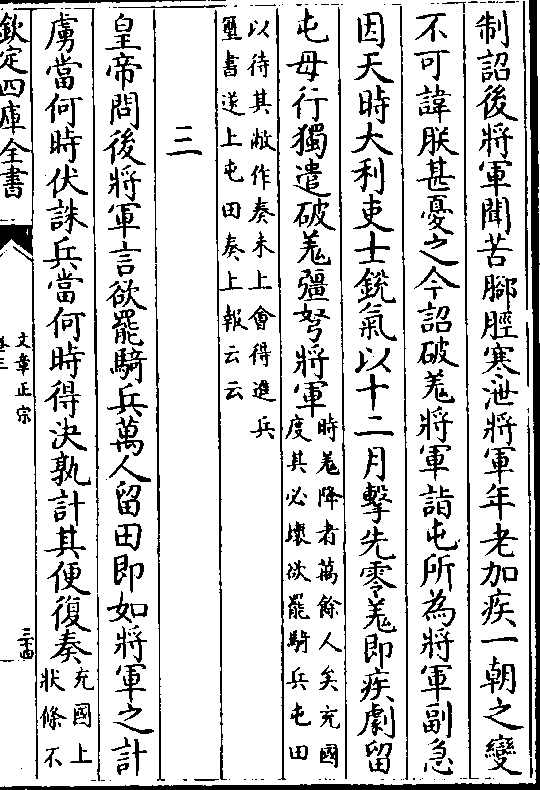 制詔後將軍聞苦腳脛寒泄將軍年老加疾一朝之變
不可諱朕甚憂之今詔破羗將軍詣屯所為將軍副急
因天時大利吏士銳氣以十二月擊先零羗即疾劇留
屯毋行獨遣破羗彊弩將軍
時羗降者萬餘人矣充國
度其必壊欲罷騎兵屯田
以待其敝作奏未上會得進兵
璽書遂上屯田奏上報云云
三
皇帝問後將軍言欲罷騎兵萬人留田即如將軍之計
虜當何時伏誅兵當何時得决孰計其便復奏
充國上
狀條不
欽定四庫全書
文章正宗
卷三
三十四